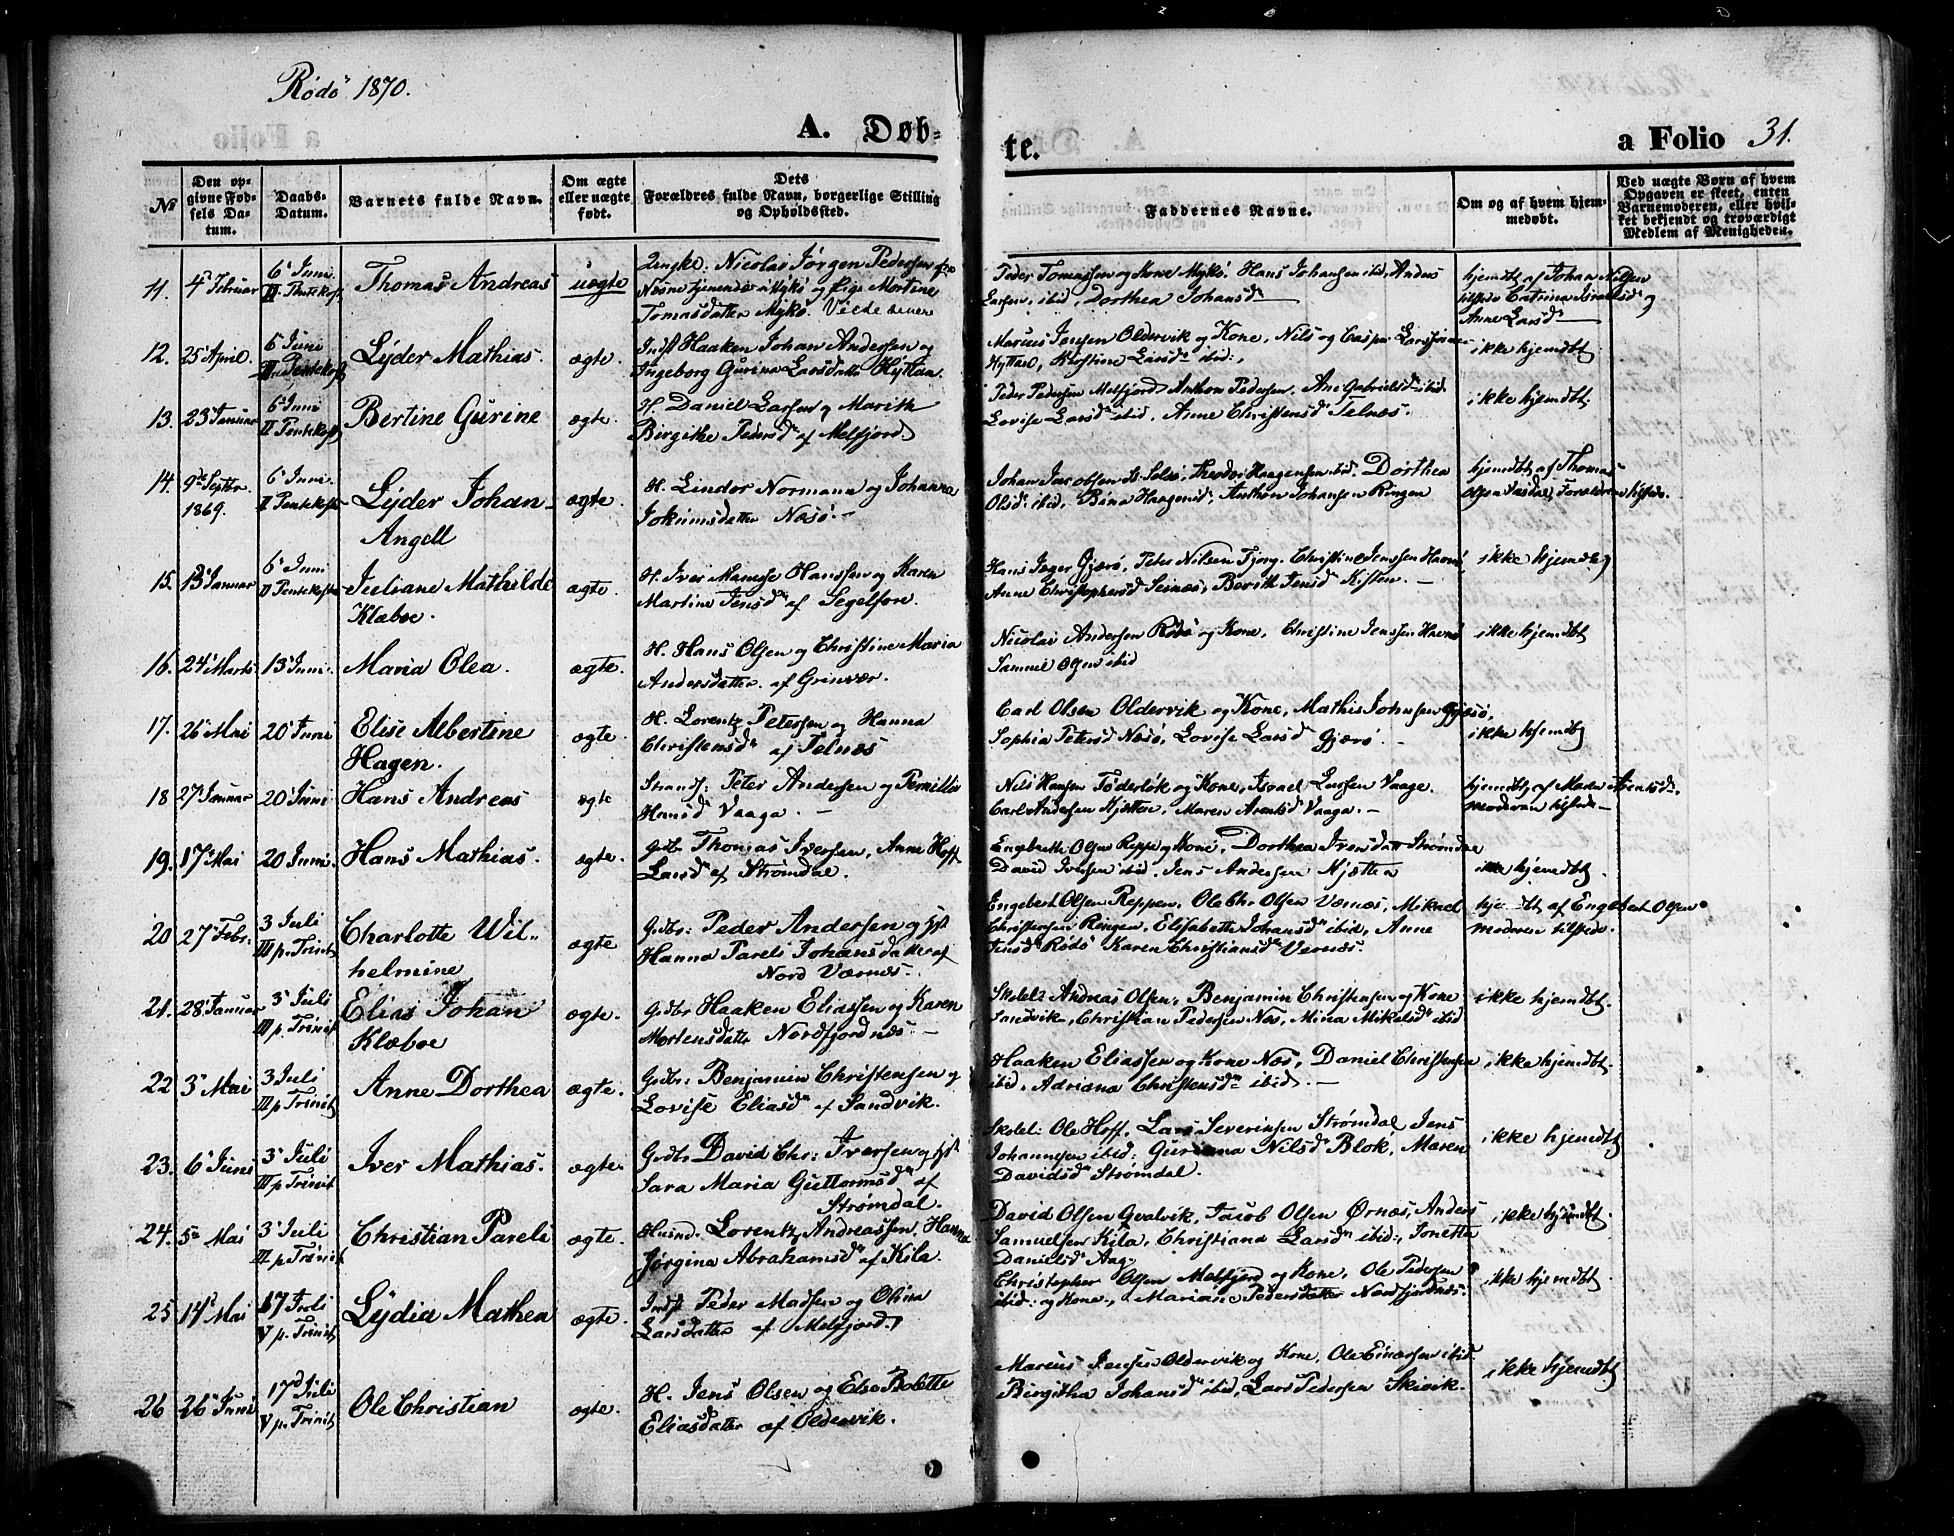 Rødø 1870.
A. Døb-
te.
a Folio 31.
No
Den op-
givne Fød-
sels Da-
tum.
Daabs-
Datum.
Barnets fulde Navn.
Om ægte
eller uægte
født.
Dets
Forældres fulde Navn, borgerlige Stilling
og Opholdssted.
Faddernes Navne.
Om og af hvem hjem-
medøbt.
Ved uægte Børn af hvem
Opgaven er skeet, enten
Barnemoderen, eller hvil-
ket bekjendt og troværdigt
Medlem af Menigheden.
11. 4 Februar
6 Juni
II Pintsefest
Thomas Andreas
uægte
Ungke: Nicolai Jørgen Pedersen
Næsne tjenende Mykø og Pige Martine
Tomasdatter Mykø.
Peder Tomassen og Kone Mykø. Hans Johansen ibid, Anders
Larsen, ibid, Dorthea Johansd
hjemdbt af Johan Nilsen
tilstede Catrina Israelsd og
Anne Larsd
12. 25 April.
6 Juni
Lyder Mathias.
ægte.
Indst Haaken Johan Andersen og
Ingeborg Gurina Larsdatter Hyttan.
Marius Jensen Oldervik og Kone, Nils og Casper
Kirstine Larsd ibid.
ikke hjemdbt
13. 23 Januar
6 Juni
II Pentekost
Bertine Gurine
ægte.
H. Daniel Larsen og Marith
Birgithe Pedersd af Melfjord.
Peder Pedersen Melfjord, Anthon Pedersen, Ane Gabrielsd ibid
Lovise Larsd ibid, Anne Christensd Telnæs.
ikke hjemdbt
14. 9de Septbr.
1869.
6 Juni
II Pentekost
Lyder Johan
Angell
ægte.
H. Lindor Normann og Johanna
Jokumsdatter Næsø.
Johan Jacobsen St Selsø, Theodor Haagensen ibid. Dorthea
Olsd ibid, Anthon Johansen Ringen
hjemdbt af Thomas
Olsen Forældrene tilstede.
15. 13 Januar
6 Juni
II Pentekost
Juliane Mathilde
Klæboe.
ægte.
H. Iver Hanssen og Karen
Martine Jensd af Segelfore.
Hans Jæger Gjærø, Peter Nilsen Tjong. Christine Jenssen Havnø
Anne Christophersd Selnæs, Berith Jensd Kisten.
ikke hjemdbt
16. 24 Marts
13 Juni
Maria Olea.
ægte.
H. Hans Olsen og Christine Maria
Andersdatter af Grinvær.
Nicolai Andersen Rødø og Kone, Christine Jenssen Havnø
Samuel Olsen ibid
ikke hjemdbt
17. 26 Mai
20 Juni
Elise Albertine
Hagen.
ægte.
H. Lorentz Petersen og Hanna
Christensd af Telnæs
Carl Olsen Oldervik og Kone, Mathis Johnsen Gjærø,
Sophia Petersd Næsø, Lovise Larsd Gjærø.
ikke hjemdbt
18 27 Januar
20 Juni
Hans Andreas
ægte
Strands: Peter Andersen og Pernille
Hansd Vaaga.
Nils Hansen og Kone, Israel Larsen Vaage.
Carl Andersen Hjætten, Maren Arentsd Vaaga.
hjemdbt af Maren Arentsd.
moderen tilstede
19. 17 Mai
20 Juni.
Hans Mathias.
ægte.
Gdbr. Thomas Iversen, Anne Hoff
Larsd af Strømdal.
Engebrekt Olsen Reppe og Kone, Dorthea Iversdatt Strømdal
David Iversen ibid, Jens Andersen Hjætten
ikke hjemdbt.
20 27 Febr:
3 Juli
III p. Trinit
Charlotte Wil-
helmine
ægte
Gdbr: Peder Andersen og Hst
Hanna Pareli Johansdatter af
Nord Værnæs.
Engebert Olsen Reppen, Ole Chr. Olsen Værnæs, Mikael
Christensen Ringen, Elisabette Johansd ibid, Anne
Jensd Rødø Karen Christiansd Vernæs.
hjemdbt af Engebert Olsen
moderen tilstede.
21. 28 Januar
3 Juli
III p. Trinit
Elias Johan
Klæboe
ægte.
Gdbr Haaken Eliassen og Karen
Mortensdatter Nordfjordnæs.
Skolel: Andreas Olsen, Benjamin Christensen og Kone
Sandvik, Christian Pedersen Næs, Mina Mikelsd ibid
ikke hjemdbt.
22 3 Mai
3 Juli
III p. Trinit
Anne Dorthea
ægte.
Gdbr: Benjamin Christensen og
Lovise Eliasd af Sandvik.
Haaken Eliassen og Kone Næs, Daniel Christensen
ibid, Adriana Christensd ibid.
ikke hjemdbt.
23. 6 Juni
3 Juli
III p. Trinit
Iver Mathias.
ægte.
Gdbr David Chr: Iversen og Hst
Sara Maria Guttormsd af
Strømdal.
Skolel: Ole Hoff, Lars Severinsen Strømdal Jens
Johannesen ibid: Guriana Nilsd Blok, Maren
Davidsd Strømdal.
ikke hjemdbt
24. 5 Mai
3 Juli
III p. Trinit
Christian Pareli
ægte.
Husmd. Lorentz Andreassen, Hanna
Jørgina Abrahamsd af Kila.
David Olsen Qvalvik, Jacob Olsen Ørnæs, Anders
Samuelsen Kila, Christiana Larsd ibid, Jonetta
Danielsd Aag
ikke hjemdbt.
25 14 Mai
17 Juli
V p. Trinit
Lydia Mathea
ægte.
Indst Peder Madsen og Olina
Larsdatter af Melfjord.
Christopher Olsen Melfjord og Kone, Ole Pedersen
ibid: og Kone, Mariane Pedersdatter Nordfjordnæs.
ikke hjemdbt
26 26 Juni
17d Juli
V p. Trinit
Ole Christian
ægte.
H. Jens Olsen og Else Bolette
Eliasdatter af Oldervik.
Marius Jensen Oldervik og Kone, Ole Einersen ibid
Birgitha Johansd ibid, Lars Pedersen Skivik.
ikke hjemdbt